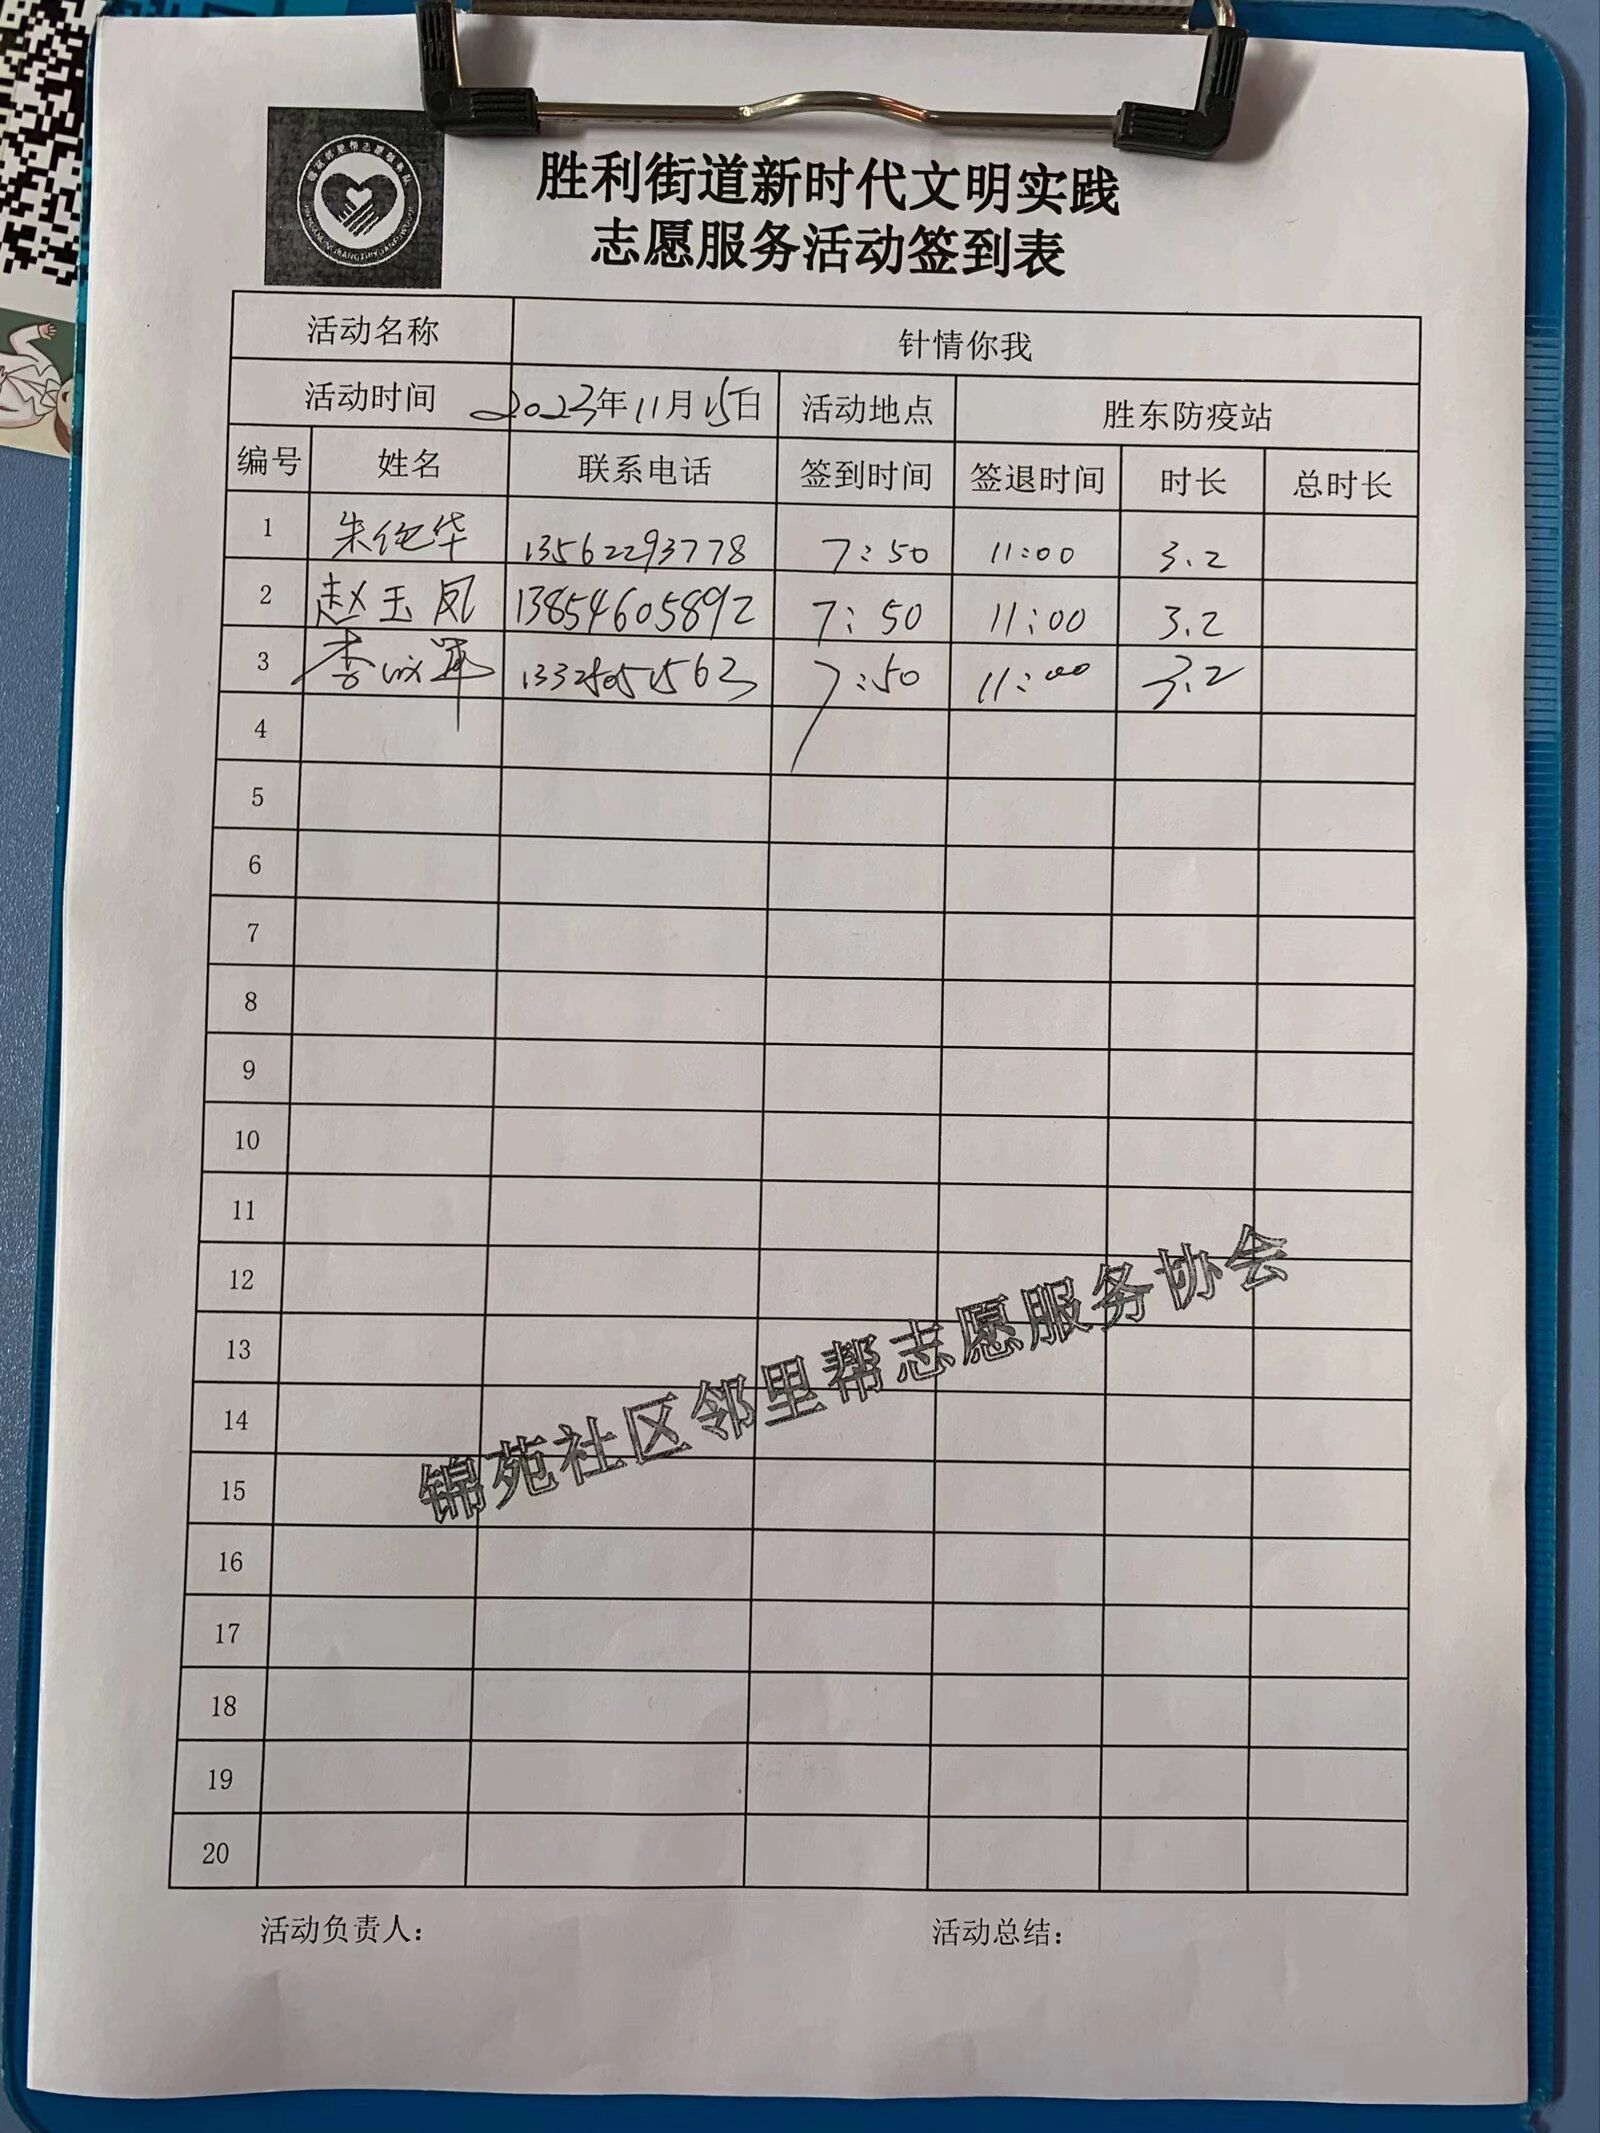 胜利街道新时代文明实践
志愿服务活动签到表
活动名称 针情你我
活动时间 2023年11月15日 活动地点 胜东防疫站
编号 姓名 联系电话 签到时间 签退时间 时长 总时长
1 朱 华 13562293778 7:50 11:00 3.2
2 赵玉凤 13854605892 7:50 11:00 3.2
3 李 军 7:50 11:00 3.2
4
5
6
7
8
9
10
11
12
13
14
15
16
17
18
19
20
锦苑社区邻里帮志愿服务协会
活动负责人： 活动总结：